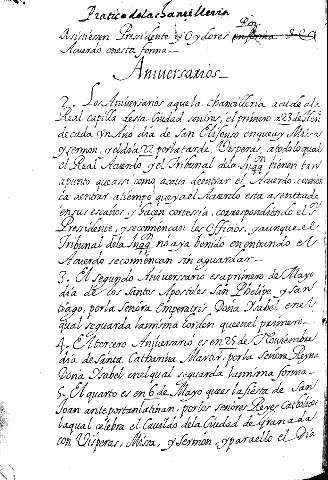 Pratica de la Chancilleria
Assistiesen Presidente y Oydores en
Acuerdo en esta forma
Aniversarios
2. Los Aniversarios a que la Chancilleria acude a la
Real capilla desta Ciudad son tres, el primero a 23 de
de cada Un Ano dia de San Ildefonso en que ay Missa
y sermon, y el dia 22 por la tarde Visperas, a todo lo qual
el Real Acuerdo y el tribunal de la Inqqn vienen tan
apunto que assi como acaua de entrar el Acuerdo, comien
ça a entrar a tiempo que ya el Acuerdo esta asentado
en sus escaños y hacen cortesia, correspondiendo el Sr
Presidente, y se comiençan los Officios, y aunque el
tribunal de la Inqqn no aya benido en entrando el
Acuerdo se comiençan sin aguardar
3. El segundo Aniversario es a primero de Mayo
dia de los Santos Apostoles San Phelipe y San
tiago, por la Señora Emperatris Doña Ysabel en el
qual se guarda la misma orden que en el primero
4. El tercero Aniversario es en 25 de Noviembre
dia de Santa Catharina Martir por la Señora Reyna
Doña Isabel en el qual se guarda la misma forma
5. El quarto es en 6 de Mayo que es la fiesta de San
Joan anteportamlatinan, por los señores Reyes Catholicos
la qual celebra el Cauildo de la Ciudad de Granada
con Visperas, Missa, y Sermon, y para ello el Dia